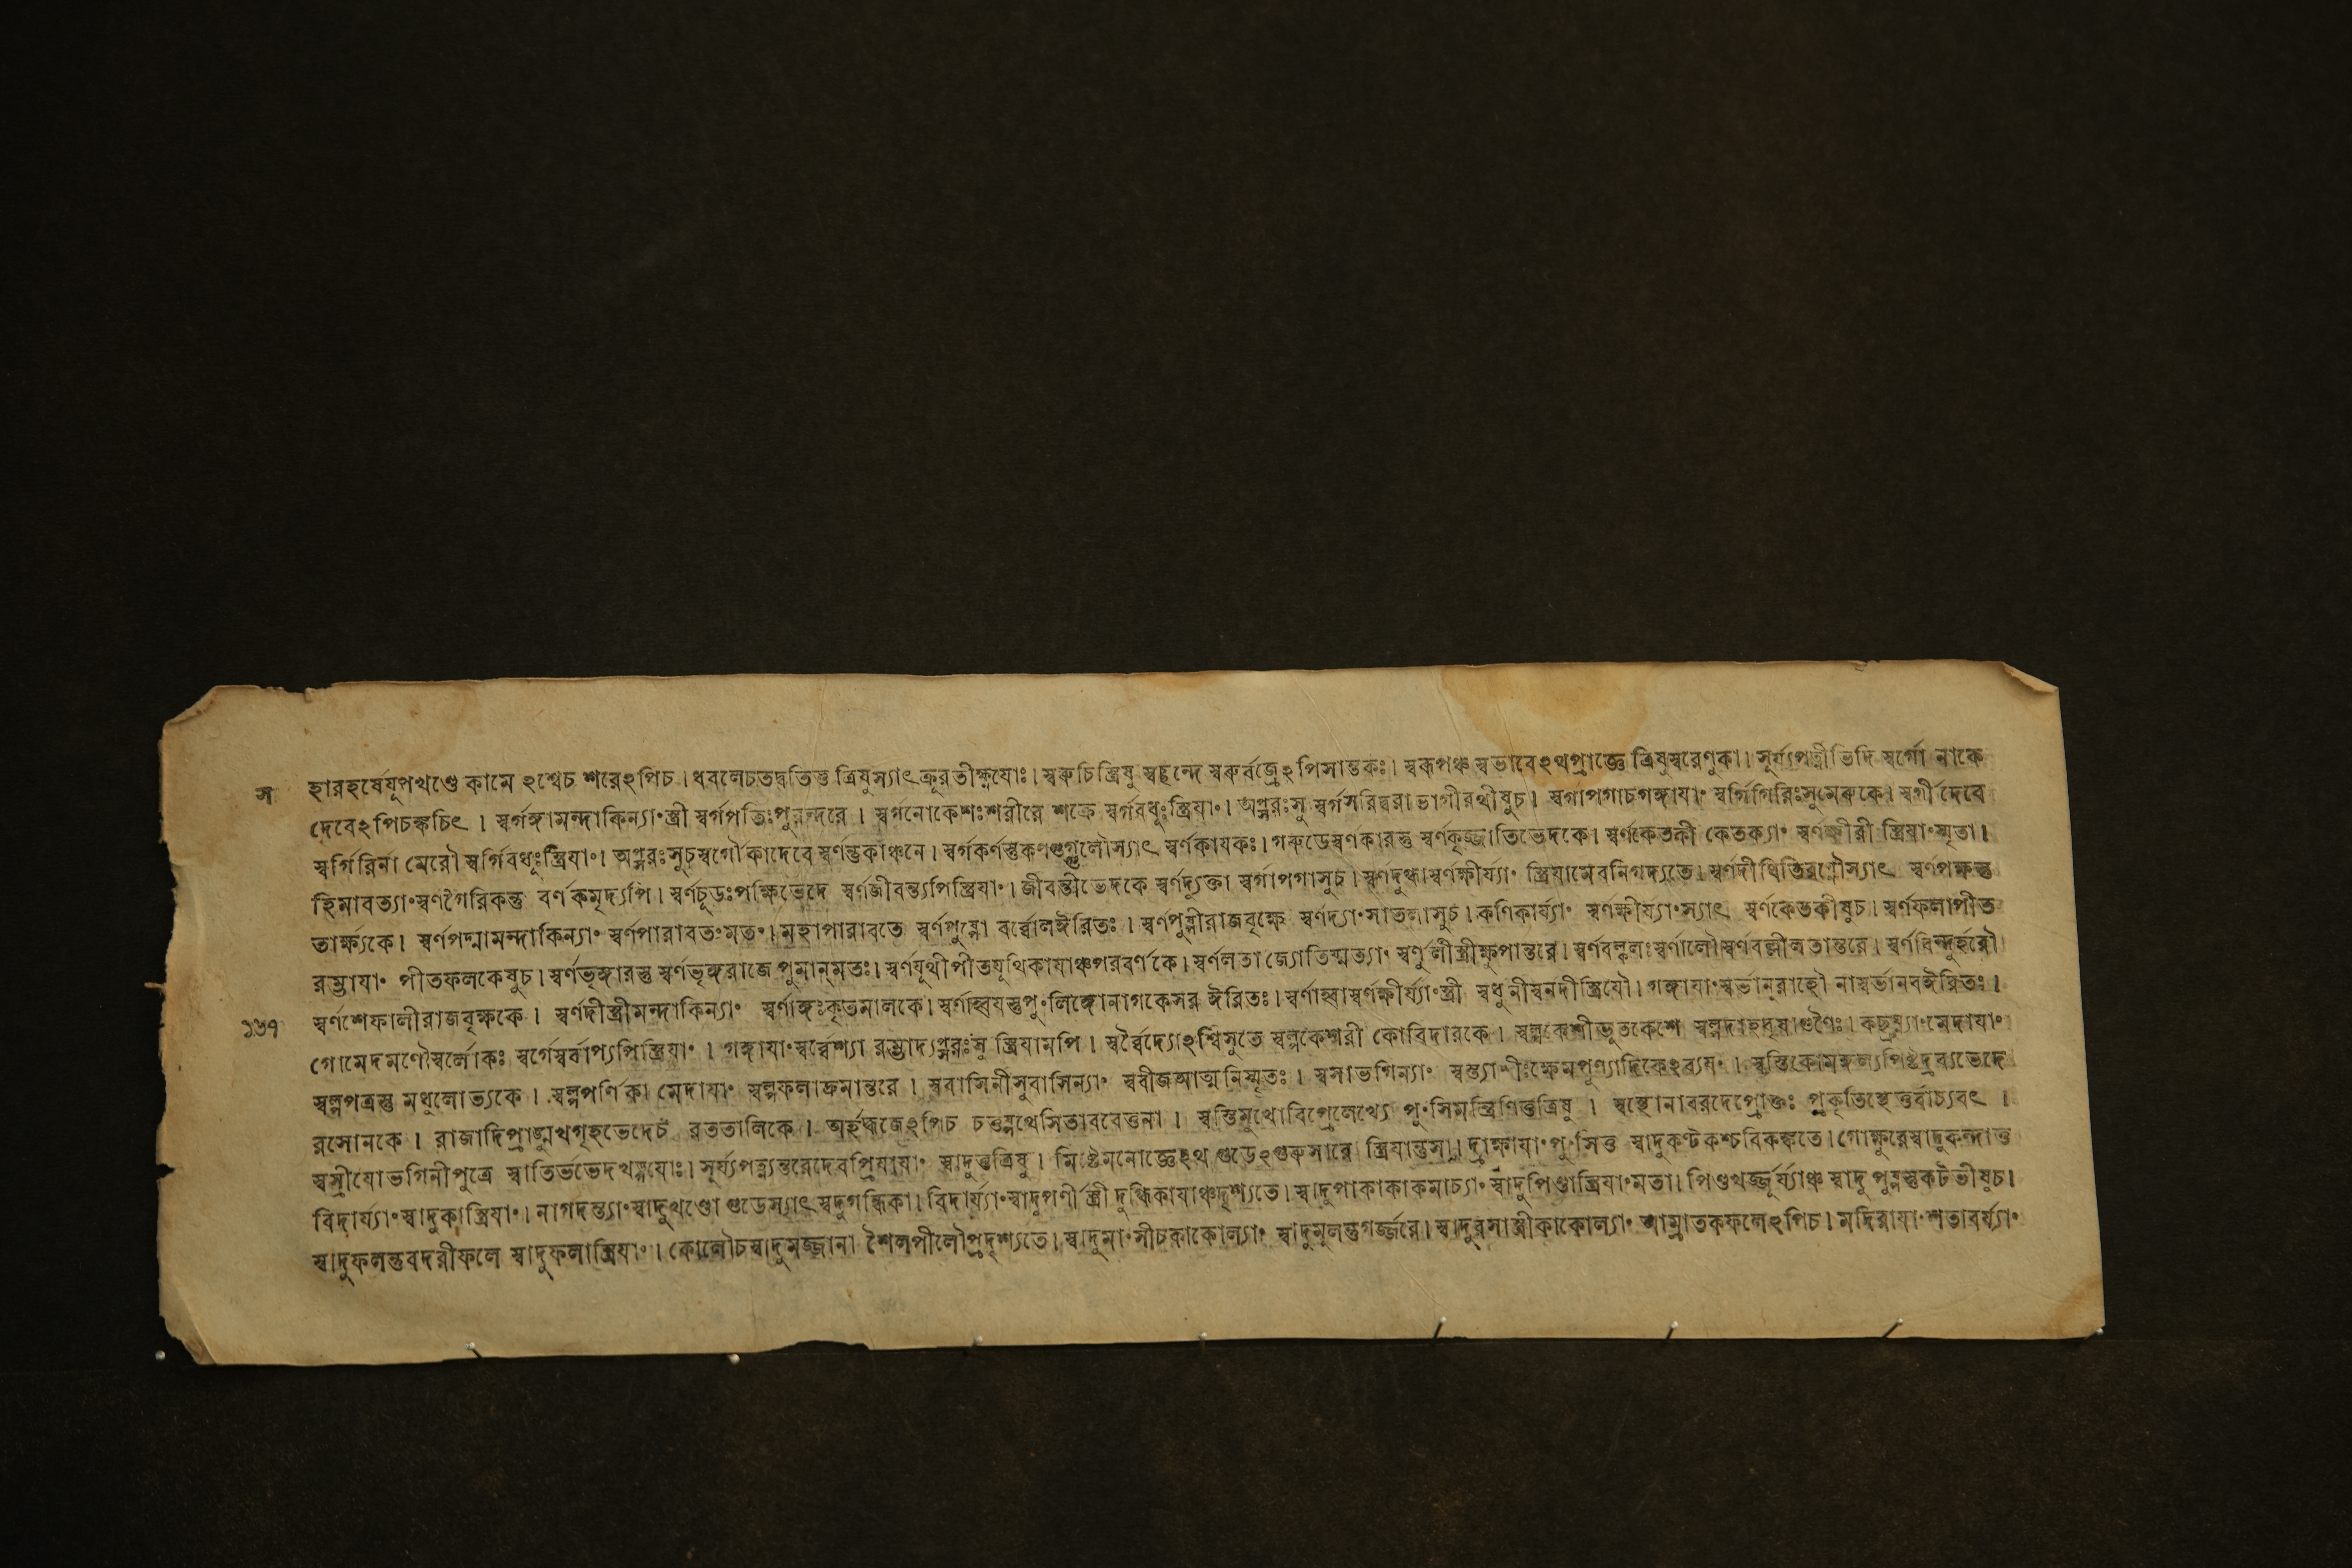 স হারহর্ষেযূপখণ্ডে কামে ঽশ্বেচ শরেঽপিচ। ধবলেচতদ্বতিস্তু ত্রিষুস্যাৎক্রূরতীক্ষ্ণযোঃ। স্বরুচিস্ত্রিষু স্বছন্দে স্বরুর্বজ্রেঽপিসান্তকঃ। স্বরূপঞ্চ স্বভাবেঽথপ্রাজ্ঞে ত্রিষুস্বরেণুকা। সূর্য্যপত্নীভিদি স্বর্গো নাকে
দেবেঽপিচক্বচিৎ। স্বর্গঙ্গামন্দাকিন্যাং স্ত্রী স্বর্গপতিঃপুরন্দরে। স্বর্গনোকেশঃশরীরে শক্রে স্বর্গবধূঃস্ত্রিযাং। অপ্সরঃসু স্বর্গসরিদ্বরা ভাগীরথীষুচ। স্বর্গাপগাচগঙ্গাযাং স্বর্গিগিরিঃসুমেরুকে। স্বর্গী দেবে
স্বর্গিরির্না মেরৌ স্বর্গিবধূঃস্ত্রিযাং। অপ্সরঃসুচস্বর্গৌকাদেবে স্বর্ণন্তুকাঞ্চনে। স্বর্গকর্ণস্তুকণগুগ্গুলৌস্যাৎ স্বর্ণকাযকঃ। গরুডেস্বর্ণকারস্তু স্বর্ণকৃজ্জাতিভেদকে। স্বর্ণকেতকী কেতক্যাং স্বর্ণক্ষীরী স্ত্রিযাংস্মৃতা।
হিমাবত্যাংস্বর্ণগৈরিকন্তু বর্ণকমৃদ্যপি। স্বর্ণচূডঃপক্ষিভেদে স্বর্ণজীবন্ত্যপিস্ত্রিযাং। জীবন্তীভেদকে স্বর্ণদ্যুক্তা স্বর্গাপগাসুচ। স্বর্ণদুগ্ধাস্বর্ণক্ষীর্য্যাং স্ত্রিযামেবনিগদ্যতে। স্বর্ণদীধিতিরগ্নৌস্যাৎ স্বর্ণপক্ষস্তু
তার্ক্ষ্যকে। স্বর্ণপদ্মামন্দাকিন্যাং স্বর্ণপারাবতংমতং। মহাপারাবতে স্বর্ণপুষ্পো বর্ব্বোলঈরিতঃ। স্বর্ণপুষ্পীরাজবৃক্ষে স্বর্ণদ্যাংসাতলাসুচ। কণিকার্য্যাং স্বর্ণক্ষীর্য্যাংস্যাৎ স্বর্ণকেতকীষুচ। স্বর্ণফলাপীত
রম্ভাযাং পীতফলকেষুচ। স্বর্ণভৃঙ্গারস্তু স্বর্ণভৃঙ্গরাজে পুমান্মতঃ। স্বর্ণযূথীপীতযূথিকাযাঞ্চপরবর্ণকে। স্বর্ণলতা জ্যোতিষ্মত্যাং স্বর্ণুলীস্ত্রীক্ষুপান্তরে। স্বর্ণবল্কলঃস্বর্ণালৌ স্বর্ণবল্লীলতান্তরে। স্বর্ণবিন্দুর্হরৌ
১৬৭ স্বর্ণশেফালীরাজবৃক্ষকে। স্বর্ণদীস্ত্রীমন্দাকিন্যাং স্বর্ণাঙ্গঃকৃতমালকে। স্বর্ণাহ্বযস্তুপুংলিঙ্গোনাগকেসর ঈরিতঃ। স্বর্ণাহ্বাস্বর্ণক্ষীর্য্যাংস্ত্রী স্বধুনীস্বনদীস্ত্রিযৌ। গঙ্গাযাংস্বর্ভানুরাহৌ নাস্বর্ভানবঈরিতঃ।
গোমেদমণৌস্বর্লোকঃ স্বর্গেস্বর্বাপ্যপিস্ত্রিযাং। গঙ্গাযাংস্বর্ব্বেশ্যা রম্ভাদ্যপ্সরঃসু স্ত্রিযামপি। স্বর্ব্বৈদ্যোঽশ্বিসুতে স্বল্পকেশরী কোবিদারকে। স্বল্পকেশীভূতকেশে কছুর্য্যাংমেদাযাং
স্বল্পপত্রস্তু মধূলোভ্যকে। স্বল্পপর্ণিকা মেদাযাং স্বল্পফলাদ্রুমান্তরে। স্ববাসিনীসুবাসিন্যাং স্ববীজআত্মনিস্মৃতঃ। স্বসাভগিন্যাং স্বস্ত্যাশীঃক্ষেমপুণ্যাদিকেঽব্যযং। স্বস্তিকোমঙ্গল্যপিষ্টদ্রব্যভেদে
রসোনকে। রাজাদিপ্রাঙ্মুখগৃহভেদেচ রততালিকে। অর্হদ্ধজেঽপিচ চতুষ্পথেসিতাববেত্তনা। স্বস্তিমুখোবিপ্রেলেখ্যে পুংসিমন্ত্রিণিতুত্রিষু। স্বস্থোনাবরদেপ্রোক্তঃ প্রকৃতিস্থেতুর্বাচ্যবৎ।
স্বস্রীযোভগিনীপুত্রে স্বাতির্ভভেদখড্গযোঃ। সূর্য্যপত্ন্যন্তরেদেবপ্রিযাযাং স্বাদুতুত্রিষু। মিষ্টেমনোজ্ঞেঽথ গুডেঽগুরুসারে স্ত্রিযান্তুসা। দ্রাক্ষাযাংপুংসিতু স্বাদুকণ্টকশ্চবিকঙ্কতে। গোক্ষুরেস্বাদুকন্দাতু
বিদার্য্যাংস্বাদুকাস্ত্রিযাং। নাগদন্ত্যাংস্বাদুখণ্ডো গুডেস্যাৎস্বদুগন্ধিকা। বিদার্য্যাংস্বাদুপর্ণী স্ত্রী দুগ্ধিকাযাঞ্চদৃশ্যতে। স্বাদুপাকাকাকমাচ্যাং স্বাদুপিণ্ডাস্ত্রিযাংমতা। পিণ্ডখর্জ্জূর্য্যাঞ্চ স্বাদু পুষ্পস্তুকটভীষুচ।
স্বাদুফলন্তুবদরীফলে স্বাদুফলাস্ত্রিযাং। কোলৌচস্বাদুমজ্জানা শৈলপীলৌপ্রদৃশ্যতে। স্বাদুমাংসীচকাকোল্যাং স্বাদুমূলন্তুগর্জ্জরে। স্বাদুরসাস্ত্রীকাকোল্যাং আম্রাতকফলেঽপিচ। মদিরাযাংশতাবর্য্যাং